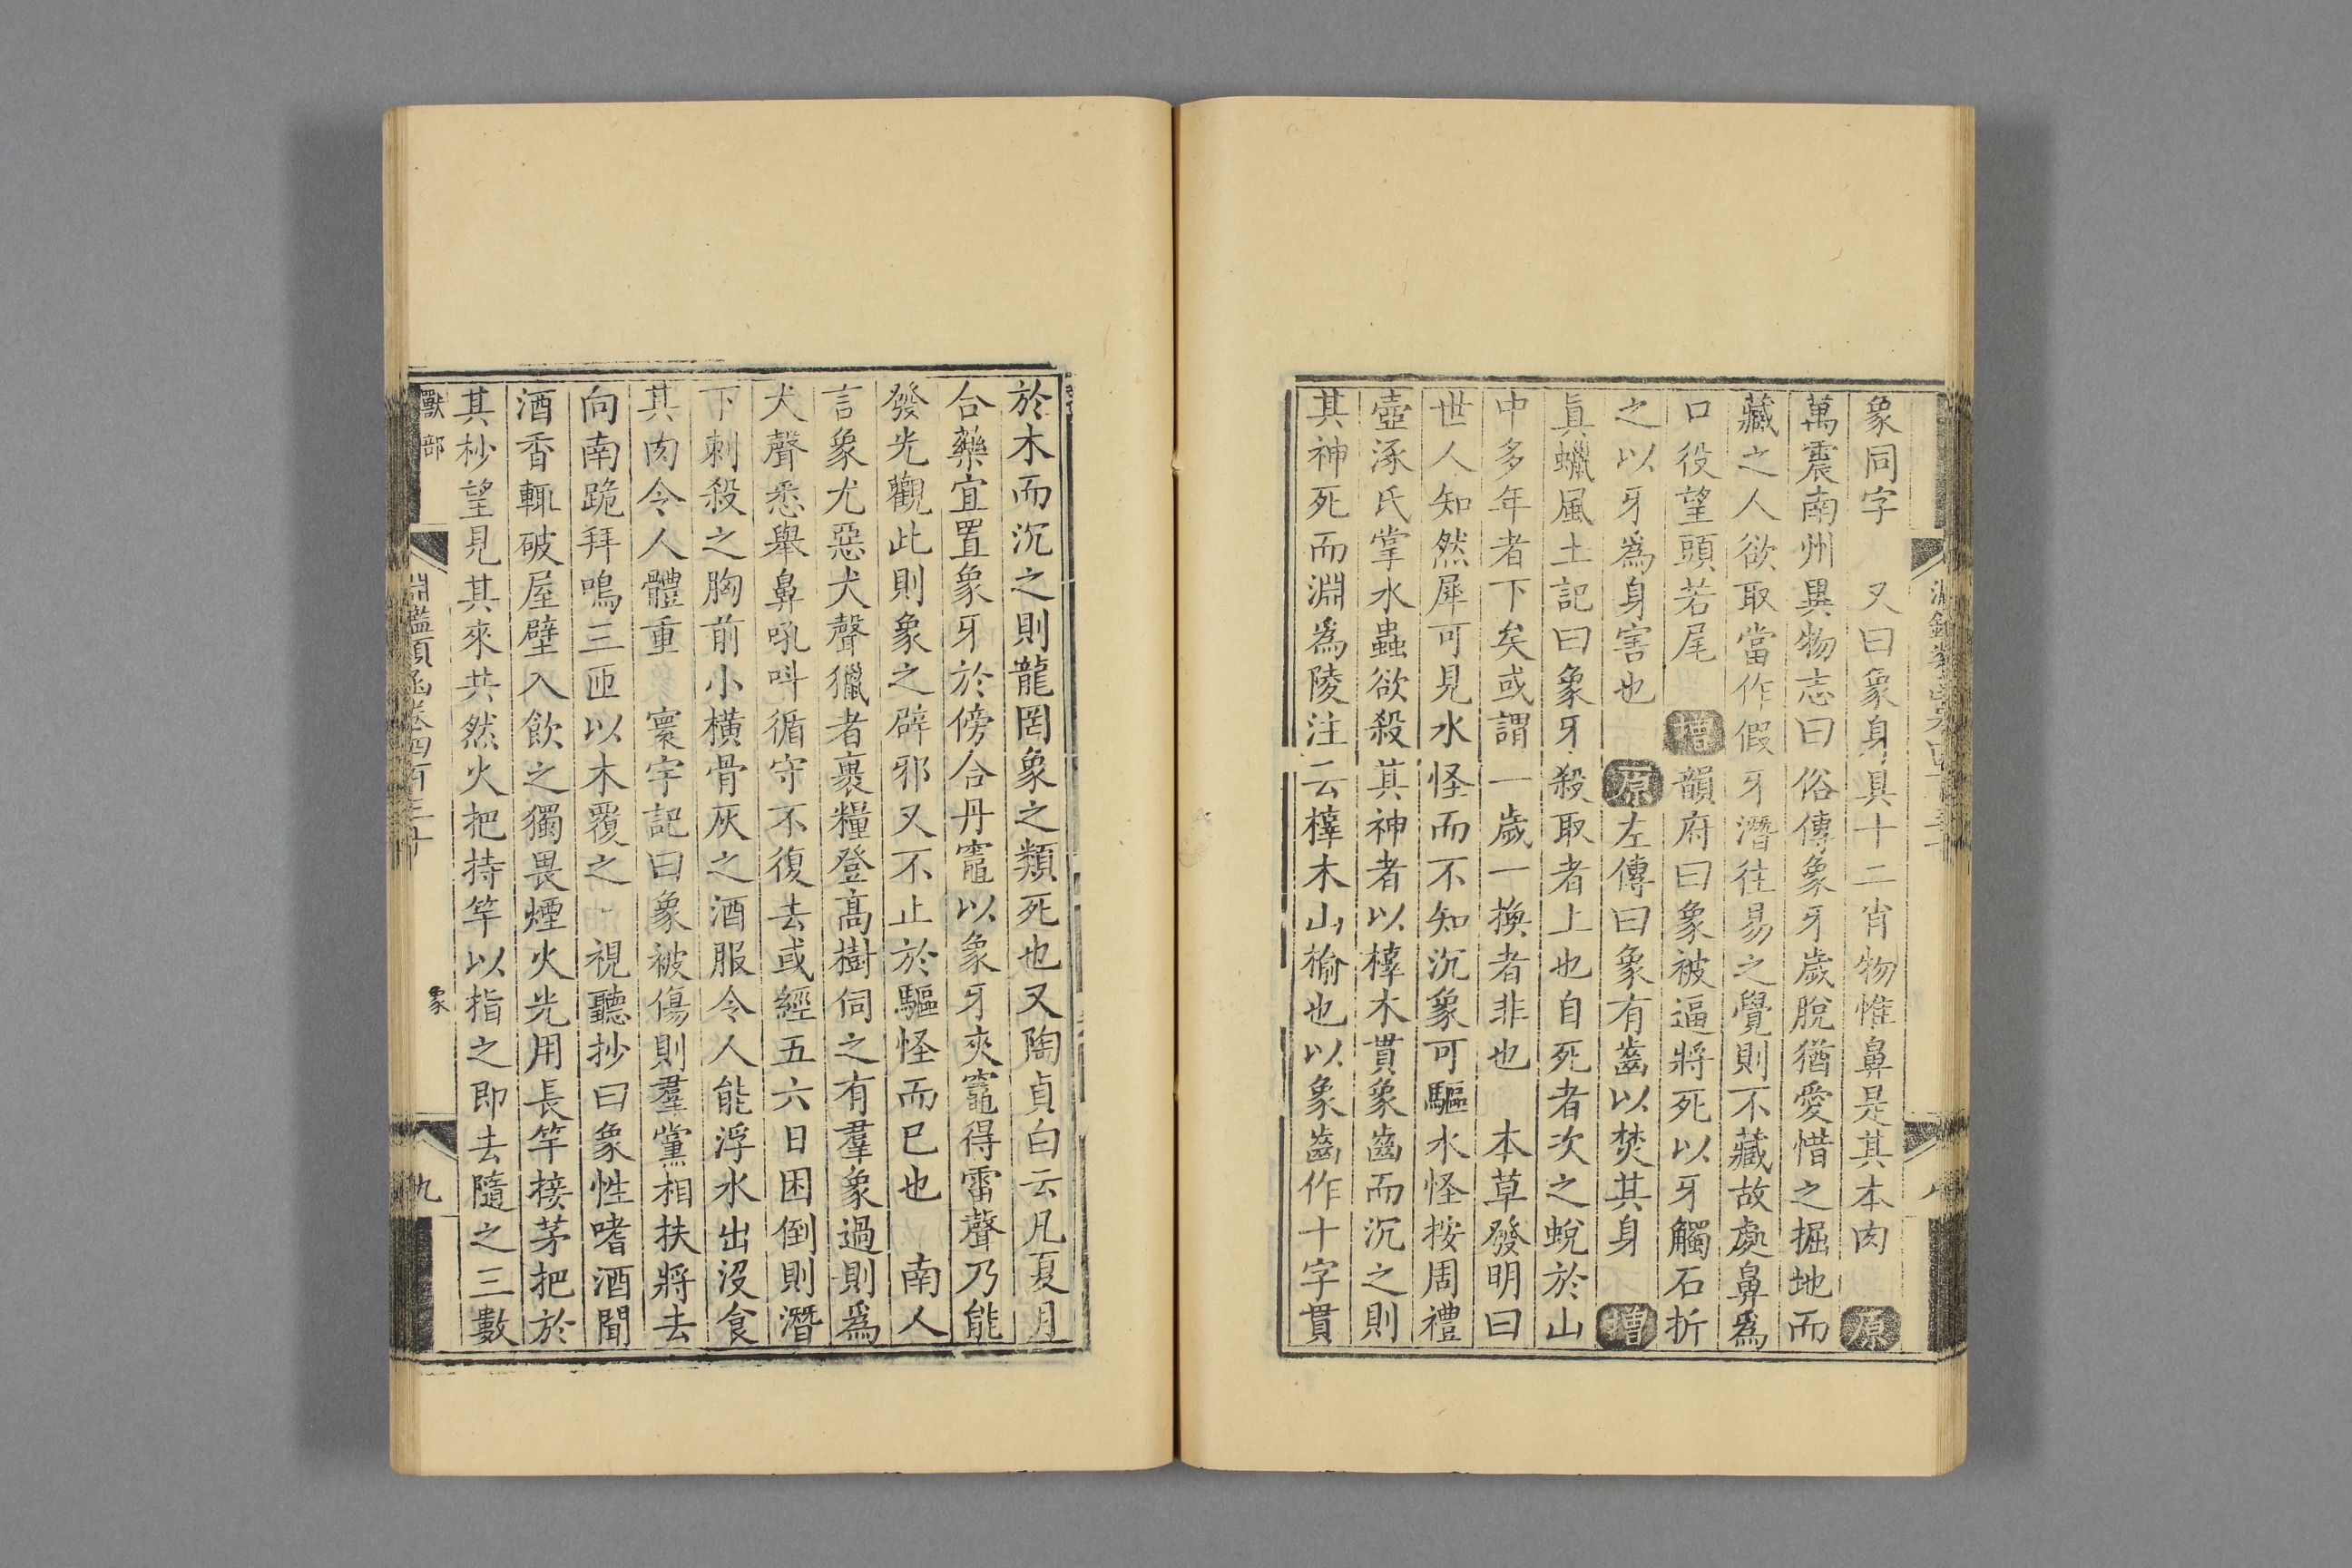 象同字　又曰象身具十二肖物惟鼻是其本肉　原
萬震南州異物志曰俗傳象牙歲脫猶愛惜之掘地而
藏之人欲取當作假牙潛往易之覺則不藏故處鼻爲
口役望頭若尾　增韻府曰象被逼將死以牙觸石折
之以牙爲身害也　原左傳曰象有齒以焚其身　增
眞蠟風土記曰象牙殺取者上也自死者次之蛻於山
中多年者下矣或謂一歲一換者非也　本草發明曰
世人知然犀可見水怪而不知沉象可驅水怪按周禮
壺涿氏掌水蟲欲殺其神者以橭木貫象齒而沉之則
其神死而淵爲陵注云橭木山榆也以象齒作十字貫
於木而沉之則龍罔象之類死也又陶貞白云凡夏月
合藥宜置象牙於傍合丹竈以象牙夾竈得雷聲乃能
發光觀此則象之辟邪又不止於驅怪而已也　南人
言象尤惡犬聲獵者裹糧登高樹伺之有羣象過則爲
犬聲悉舉鼻吼呌循守不復去或經五六日困倒則潛
下刺殺之胸前小橫骨灰之酒服令人能浮水出沒食
其肉令人體重　寰宇記曰象被傷則羣黨相扶將去
向南跪拜鳴三匝以木覆之　視聽抄曰象性嗜酒聞
酒香輒破屋壁入飲之獨畏煙火光用長竿接茅把於
其杪望見其來共然火把持竿以指之即去隨之三數
獸部
淵鑑類函卷四百三十
象
九